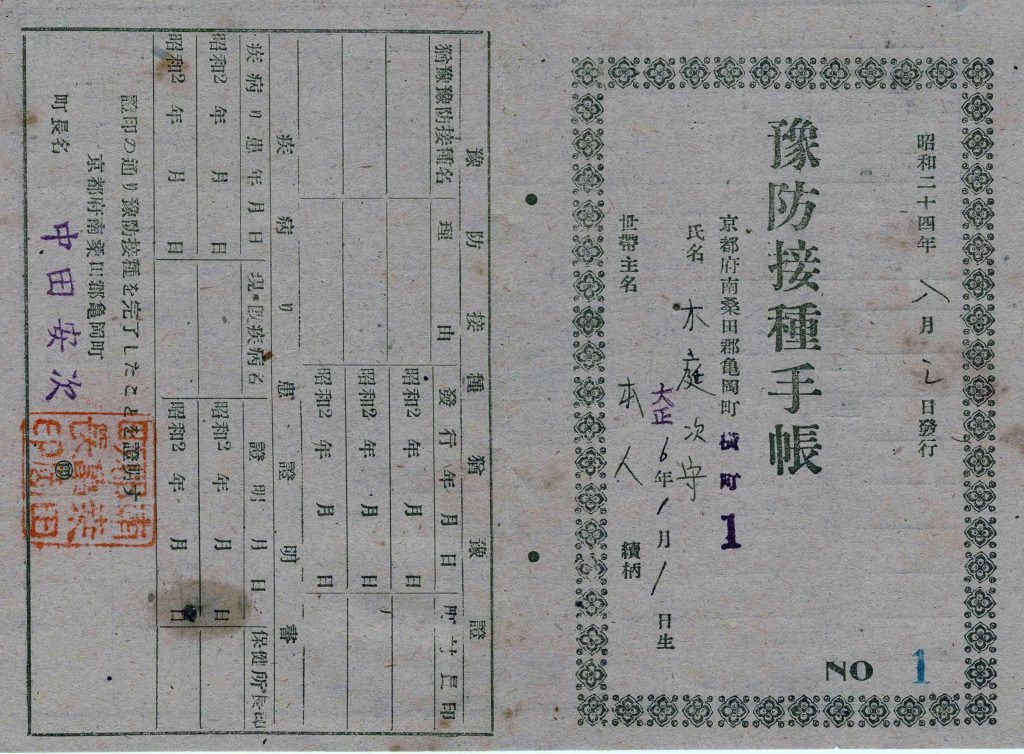 昭和二十四年 八月 日發行
豫防接種手帳
京都府南桑田郡亀岡町 横町 1
氏名 木庭次守
大正6年1月1日生
世帶主名 本人 續柄
NO 1
豫防接種猶豫證
猶豫豫防接種名 理由 發行年月日 町村長印
昭和2 年 月 日
昭和2 年 月 日
昭和2 年 月 日
疾病り患證明書
疾病り患年月日 證明月日 保健所長印
昭和2 年 月 日 昭和2 年 月 日
昭和2 年 月 日 昭和2 年 月 日
證印の通り豫防接種を完了したことを證明す
京都府南桑田郡亀岡町
町長名 中田安次 ㊞